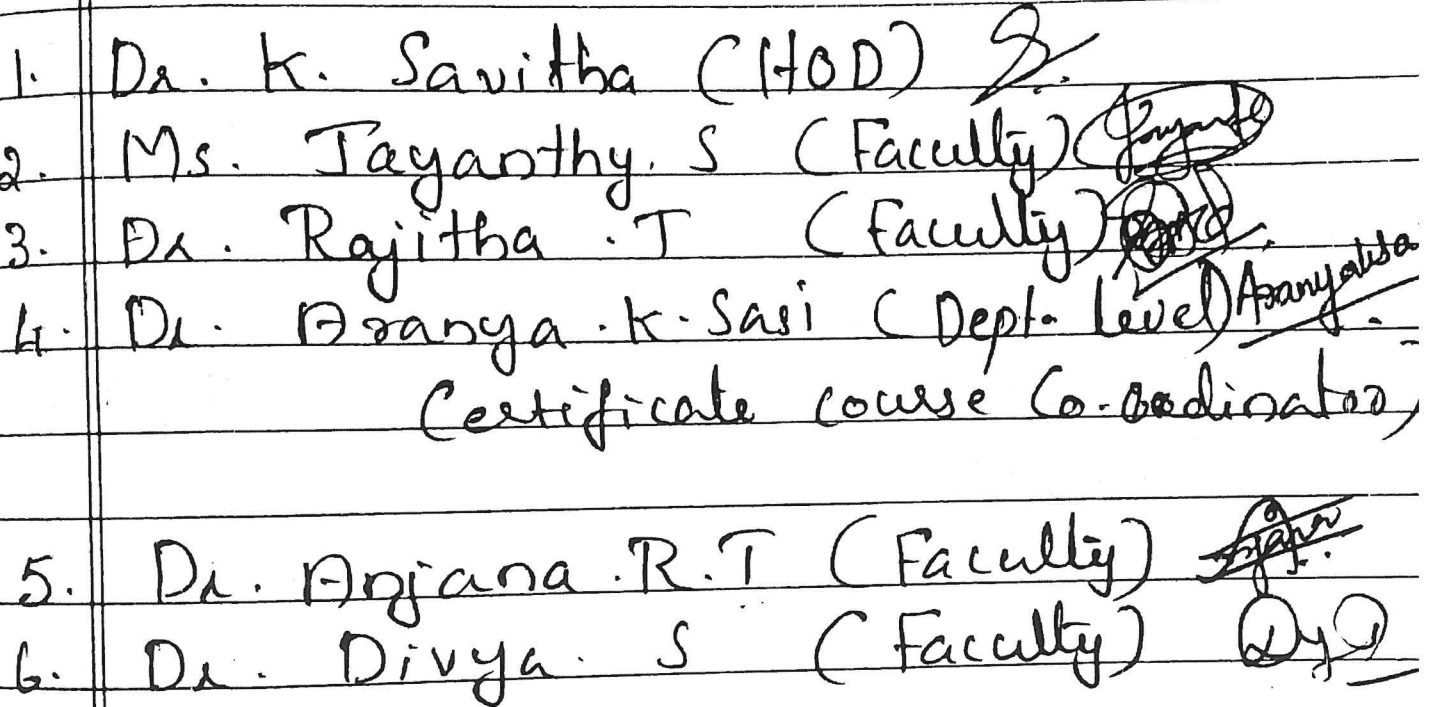 1. Dr. K. Savitha (HOD)
2. Ms. Jayanthy. S (Faculty)
3. Dr. Rajitha .T (Faculty)
4. Dr. Aranya .K. Sasi (Dept. Level)
Certificate course Co-ordinator,
5. Dr. Anjana .R.T (Faculty)
6. Dr. Divya. S (Faculty)